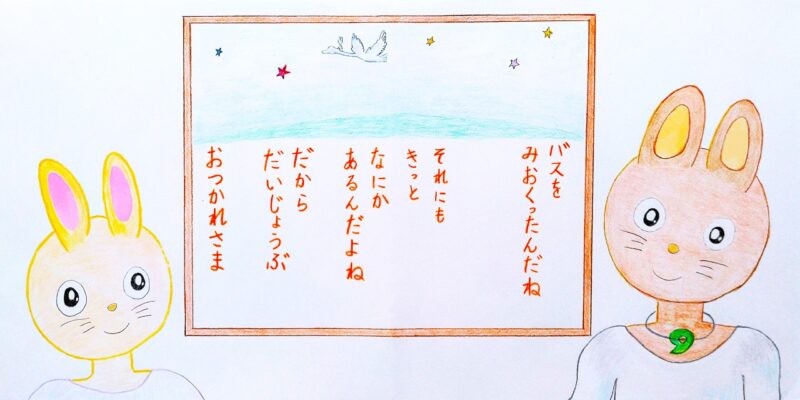 バスを
みおくったんだね
それにも
きっと
なにか
あるんだよね
だから
だいじょうぶ
おつかれさま